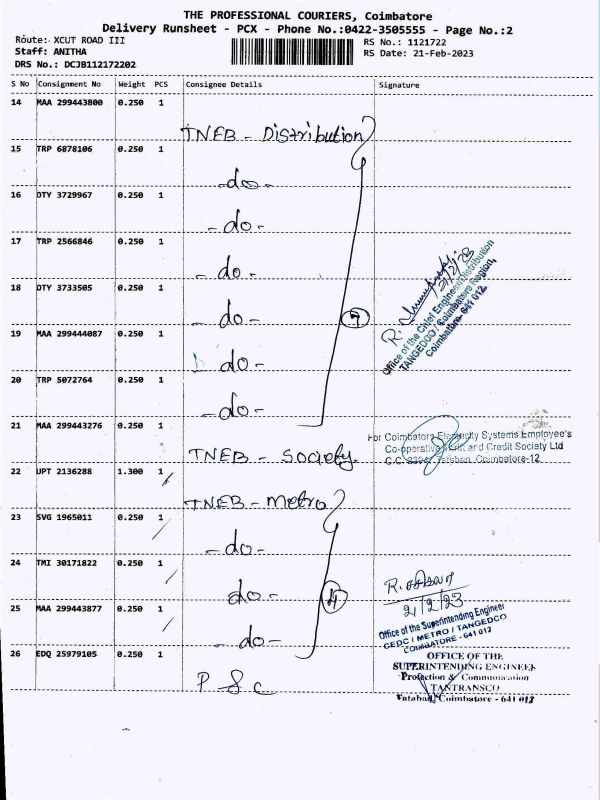 THE PROFESSIONAL COURIERS, Coimbatore
Delivery Runsheet - PCX - Phone No.:0422-3505555 - Page No.:2
Route: XCUT ROAD III
RS No.: 1121722
Staff: ANITHA
RS Date: 21-Feb-2023
DRS No.: DCJB112172202
S No Consignment No Weight PCS Consignee Details Signature
14 MAA 299443800 0.250 1
TNEB - Distribution
15 TRP 6878106 0.250 1
- do -
16 OTY 3729967 0.250 1
- do -
17 TRP 2566846 0.250 1
- do -
18 OTY 3733505 0.250 1
- do -
7
19 MAA 299444087 0.250 1
- do -
20 TRP 5072764 0.250 1
- do -
R.
21/2/23
Office of the Chief Engineer/Distribution
TANGEDCO / Coimbatore Region,
Coimbatore - 641 012
21 MAA 299443276 0.250 1
TNEB - Society
For Coimbatore Electricity Systems Employee's
Co-operative Thrift and Credit Society Ltd
Tatabad, Coimbatore-12
22 UPT 2136288 1.300 1
TNEB - Metro
23 SVG 1965011 0.250 1
- do -
24 TMI 30171822 0.250 1
- do -
4
25 MAA 299443877 0.250 1
- do -
R.
21/2/23
Office of the Superintending Engineer
CEDC / METRO / TANGEDCO
COIMBATORE - 641 012
26 EDQ 25979105 0.250 1
P & C
OFFICE OF THE
SUPERINTENDING ENGINEER
Protection & Communication
TANTRANSCO
Tatabad, Coimbatore - 641 012